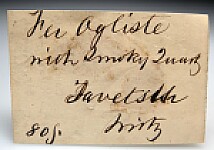 Fer Ogliste
with Smoky Quartz
Tavetsch
80 f.